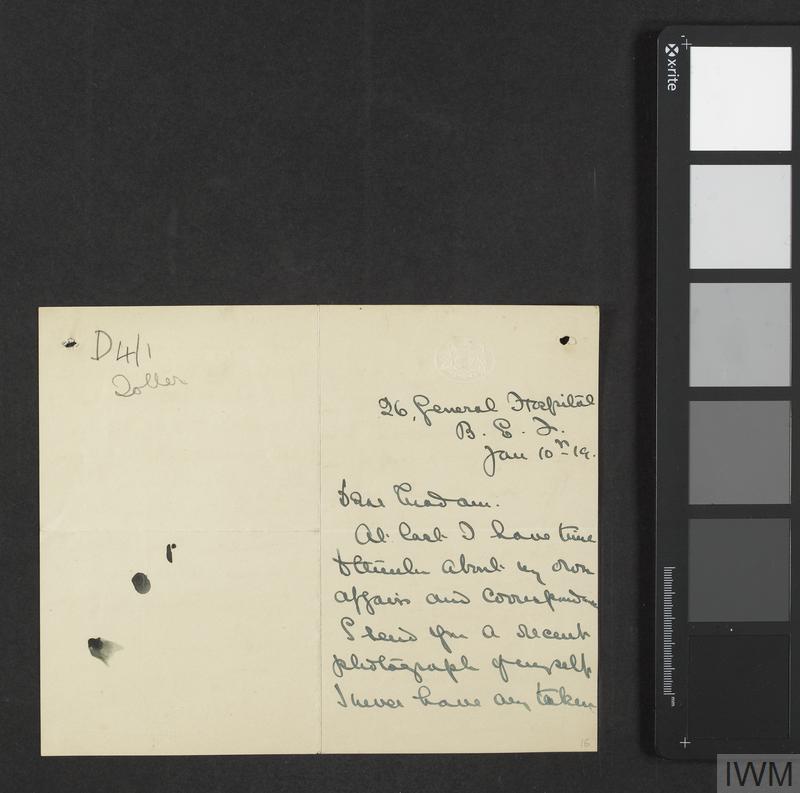 D4/1
Toller
26, General Hospital
B. E. F.
Jan 10th 19.
Dear Madam.
At last I have time
to think about my own
affairs and correspondence
I send you a recent
photograph of myself
I never have any taken
16
x-rite
mm
IWM